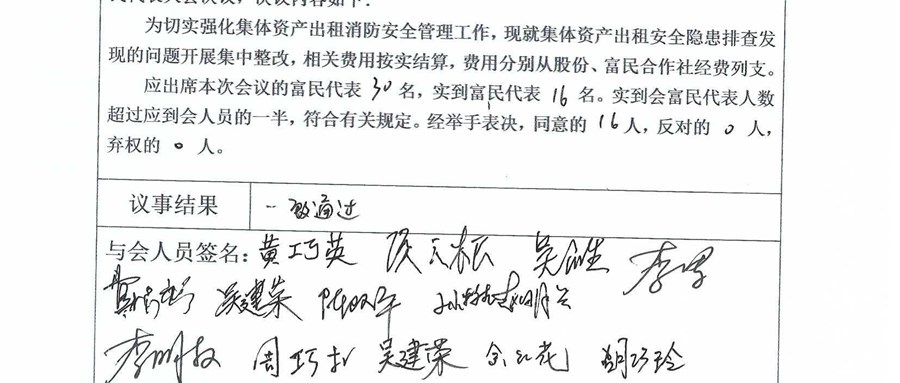 民代表大会议议，决议内容如下：
为切实强化集体资产出租消防安全管理工作，现就集体资产出租安全隐患排查发
现的问题开展集中整改，相关费用按实结算，费用分别从股份、富民合作社经费列支。
应出席本次会议的富民代表 30 名，实到富民代表 16 名。实到会富民代表人数
超过应到会人员的一半，符合有关规定。经举手表决，同意的 16 人，反对的 0 人，
弃权的 0 人。
议事结果 一致通过
与会人员签名：黄巧英
吴建荣
李明 周巧 吴建荣 胡巧玲